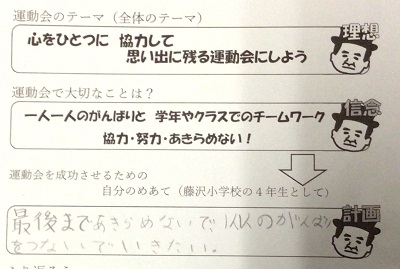 運動会のテーマ（全体のテーマ）
理想
心をひとつに 協力して
思い出に残る運動会にしよう
運動会で大切なことは？
信念
一人一人のがんばりと 学年やクラスでのチームワーク
協力・努力・あきらめない！
運動会を成功させるための
自分のめあて（藤沢小学校の４年生として）
計画
最後まであきらめないで1人1人のがんばり
をつないでいきたい。